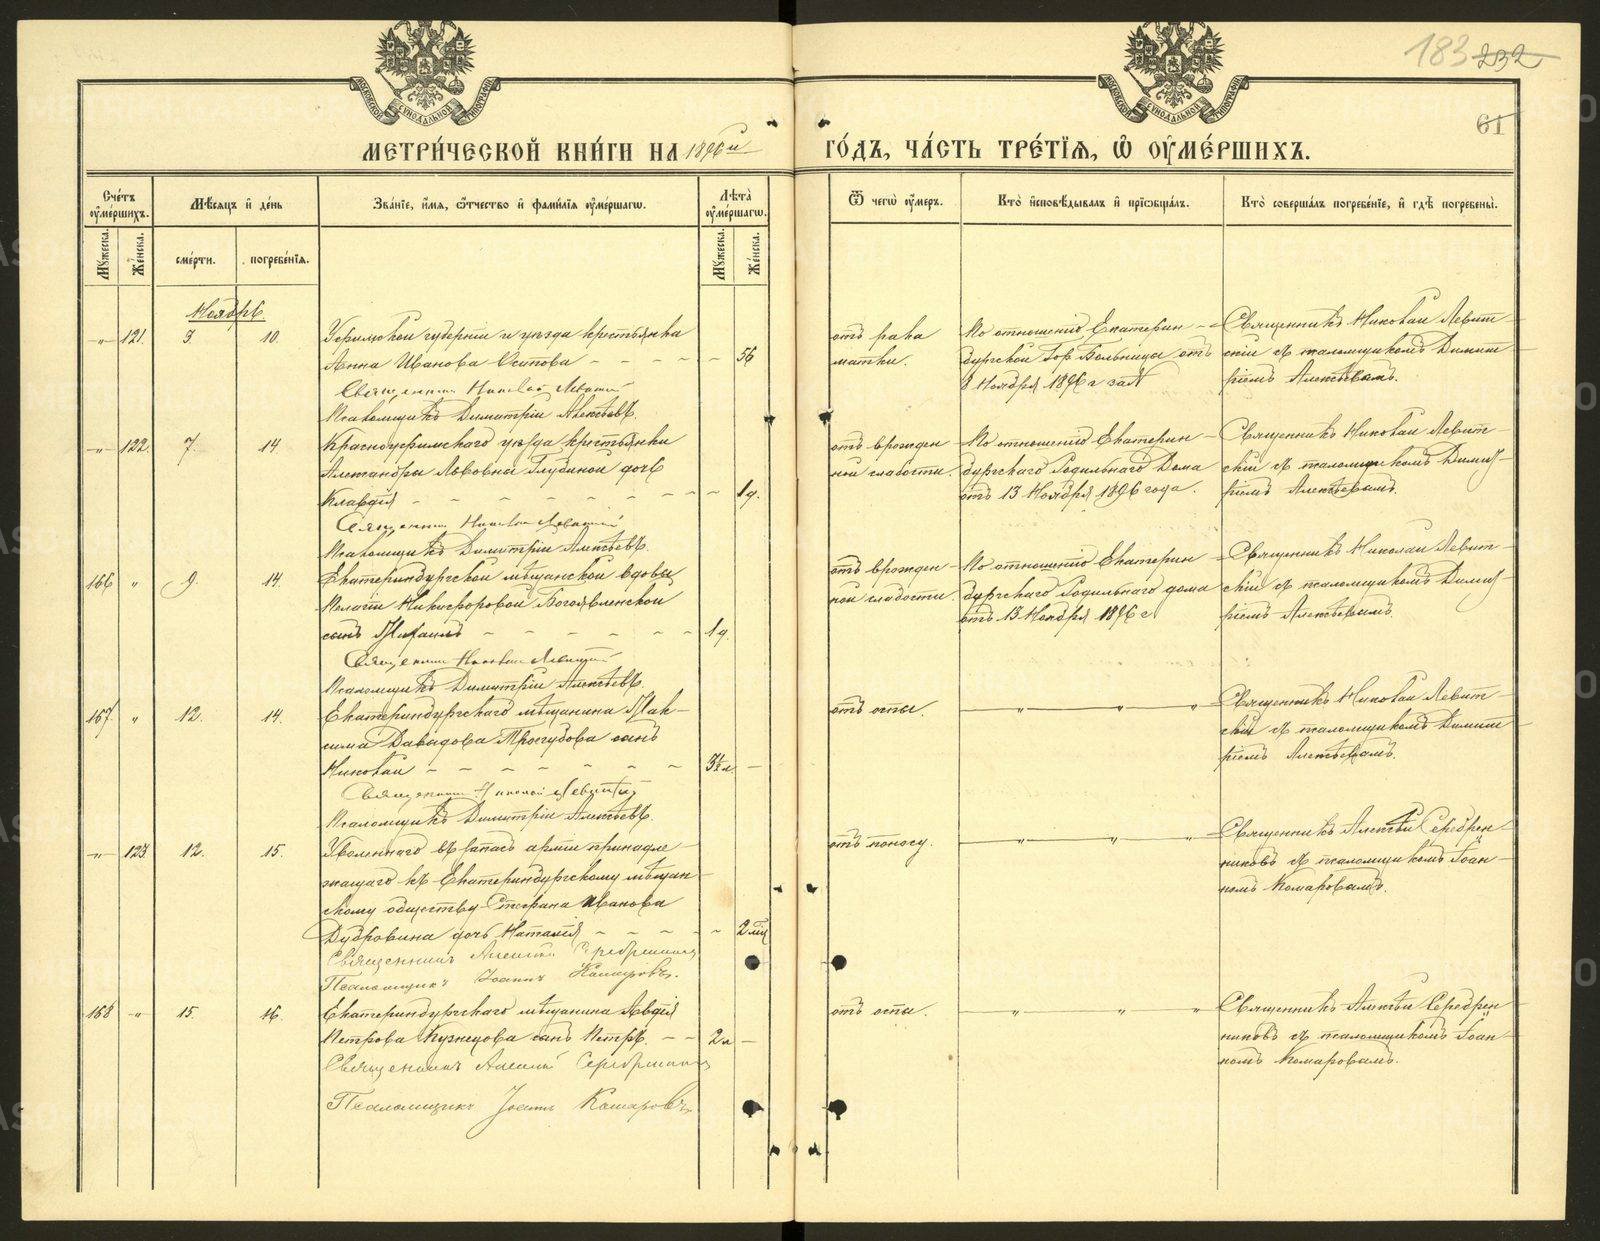 183 232
61
МЕТРИ́ЧЕСКОЙ КНИ́ГИ НА 1896й ГО́ДЪ, ЧА́СТЬ ТРЕ́ТІѦ, Ѡ ОУМЕ́РШИХЪ.
Сче́тъ оуме́ршихъ.
Мѣсяцъ и де́нь
Зва́нїе, и́мя, о́тчество и фами́лїя оуме́ршагѡ.
Лѣта̀ оуме́ршагѡ.
Ѿ чегѡ̀ оу́меръ.
Кто̀ исповѣ́дывалъ и прїѡбща́лъ.
Кто̀ соверша́лъ погребе́нїе, и гдѣ̀ погребены̀.
Мужеска.
Женска.
сме́рти.
погребе́нїя.
Мужеска.
Женска.
Ноябрь
-"- 121. 9. 10. Уфимской губерніи и уѣзда крестьянка
Анна Иванова Осипова - 56
Священникъ Николай Левитскій
Псаломщикъ Димитрій Алексѣевъ.
отъ рака
матки.
По отношенію Екатерин-
бургской Гор. Больницы отъ
8 Ноября 1896 г за №
Священникъ Николай Левит-
скій съ псаломщикомъ Димит-
ріемъ Алексѣевымъ.
-"- 122. 7. 14 Красноуфимскаго уѣзда крестьянки
Александры Львовны Глубиной дочь
Клавдія - 1 д.
Священникъ Николай Левитскій
Псаломщикъ Димитрій Алексѣевъ.
отъ врожден-
ной слабости.
По отношенію Екатерин-
бургскаго Родильнаго Дома
отъ 13 Ноября 1896 года.
Священникъ Николай Левит-
скій съ псаломщикомъ Димит-
ріемъ Алексѣевымъ.
166 " 9. 14. Екатеринбургской мѣщанской вдовы
Пелагіи Никифоровой Богоявленской
сынъ Михаилъ - 1 д.
Священникъ Николай Левитскій
Псаломщикъ Димитрій Алексѣевъ.
отъ врожден-
ной слабости.
По отношенію Екатерин-
бургскаго Родильнаго дома
отъ 13 Ноября 1896 г.
Священникъ Николай Левит-
скій съ псаломщикомъ Димит-
ріемъ Алексѣевымъ.
167 " 12. 14. Екатеринбургскаго мѣщанина Мак-
сима Давыдова сынъ
Николай - 3½ л. -
Священникъ Николай Левитскій
Псаломщикъ Димитрій Алексѣевъ.
отъ оспы. " " "
Священникъ Николай Левит-
скій съ псаломщикомъ Димит-
ріемъ Алексѣевымъ.
-"- 123. 12. 15. Уволеннаго въ запасъ арміи принадле-
жащаго къ Екатеринбургскому мѣщан-
скому обществу Стефана Иванова
Дубровина дочь Наталія - 2 мѣс
Священникъ Алексій Серебренниковъ
Псаломщикъ Іоаннъ Комаровъ.
отъ поносу. " " "
Священникъ Алексѣй Серебрен-
никовъ съ псаломщикомъ Іоан-
номъ Комаровымъ.
168 -"- 15. 16. Екатеринбургскаго мѣщанина Авдія
Петрова Кузнецова сынъ Петръ. - 2 л -
Священникъ Алексій Серебренниковъ
Псаломщикъ Іоаннъ Комаровъ.
отъ оспы. " " "
Священникъ Алексѣй Серебрен-
никовъ съ псаломщикомъ Іоан-
номъ Комаровымъ.